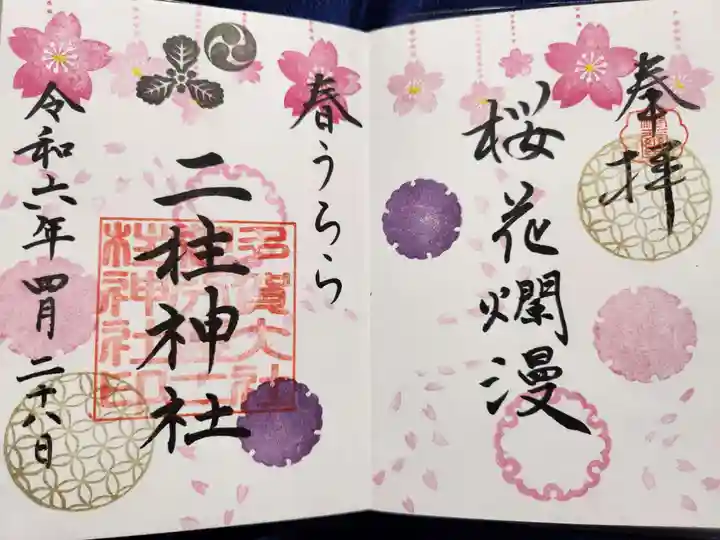 奉拝
桜花爛漫
春うらら
二柱神社
多賀大社
令和六年四月二十八日